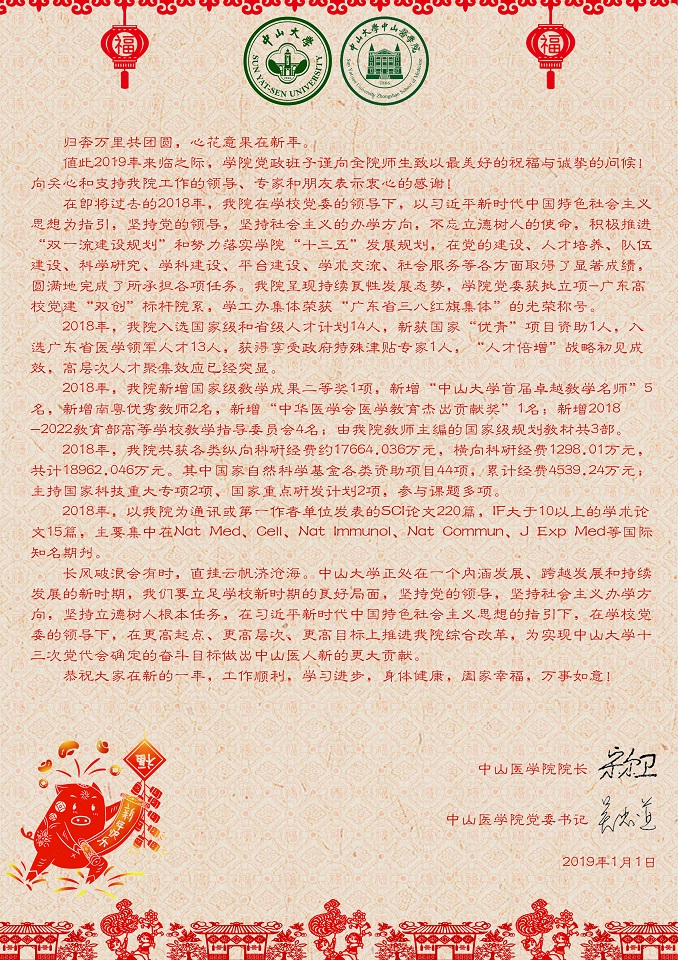 福
福
中山大学
SUN YAT-SEN UNIVERSITY
中山大学中山医学院
Sun Yat-sen University Zhongshan School of Medicine
1866
归奔万里共团圆，心花意果在新年。
值此2019年来临之际，学院党政班子谨向全院师生致以最美好的祝福与诚挚的问候！
向关心和支持我院工作的领导、专家和朋友表示衷心的感谢！
在即将过去的2018年，我院在学校党委的领导下，以习近平新时代中国特色社会主义
思想为指引，坚持党的领导，坚持社会主义的办学方向，不忘立德树人的使命，积极推进
“双一流建设规划”和努力落实学院“十三五”发展规划，在党的建设、人才培养、队伍
建设、科学研究、学科建设、平台建设、学术交流、社会服务等各方面取得了显著成绩，
圆满地完成了所承担各项任务。我院呈现持续良性发展态势，学院党委获批立项-广东高
校党建“双创”标杆院系，学工办集体荣获“广东省三八红旗集体”的光荣称号。
2018年，我院入选国家级和省级人才计划14人，新获国家“优青”项目资助1人，入
选广东省医学领军人才13人，获得享受政府特殊津贴专家1人，“人才倍增”战略初见成
效，高层次人才聚集效应已经突显。
2018年，我院新增国家级教学成果二等奖1项，新增“中山大学首届卓越教学名师”5
名，新增南粤优秀教师2名，新增“中华医学会医学教育杰出贡献奖”1名；新增2018
-2022教育部高等学校教学指导委员会4名；由我院教师主编的国家级规划教材共3部。
2018年，我院共获各类纵向科研经费约17664.036万元，横向科研经费1298.01万元，
共计18962.046万元。其中国家自然科学基金各类资助项目44项，累计经费4539.24万元；
主持国家科技重大专项2项、国家重点研发计划2项，参与课题多项。
2018年，以我院为通讯或第一作者单位发表的SCI论文220篇，IF大于10以上的学术论
文15篇，主要集中在Nat Med、Cell、Nat Immunol、Nat Commun、J Exp Med等国际
知名期刊。
长风破浪会有时，直挂云帆济沧海。中山大学正处在一个内涵发展、跨越发展和持续
发展的新时期，我们要立足学校新时期的良好局面，坚持党的领导，坚持社会主义办学方
向，坚持立德树人根本任务，在习近平新时代中国特色社会主义思想的指引下，在学校党
委的领导下，在更高起点、更高层次、更高目标上推进我院综合改革，为实现中山大学十
三次党代会确定的奋斗目标做出中山医人新的更大贡献。
恭祝大家在新的一年，工作顺利，学习进步，身体健康，阖家幸福，万事如意！
福
新年快乐
中山医学院院长 宋尔卫
中山医学院党委书记 吴忠道
2019年1月1日